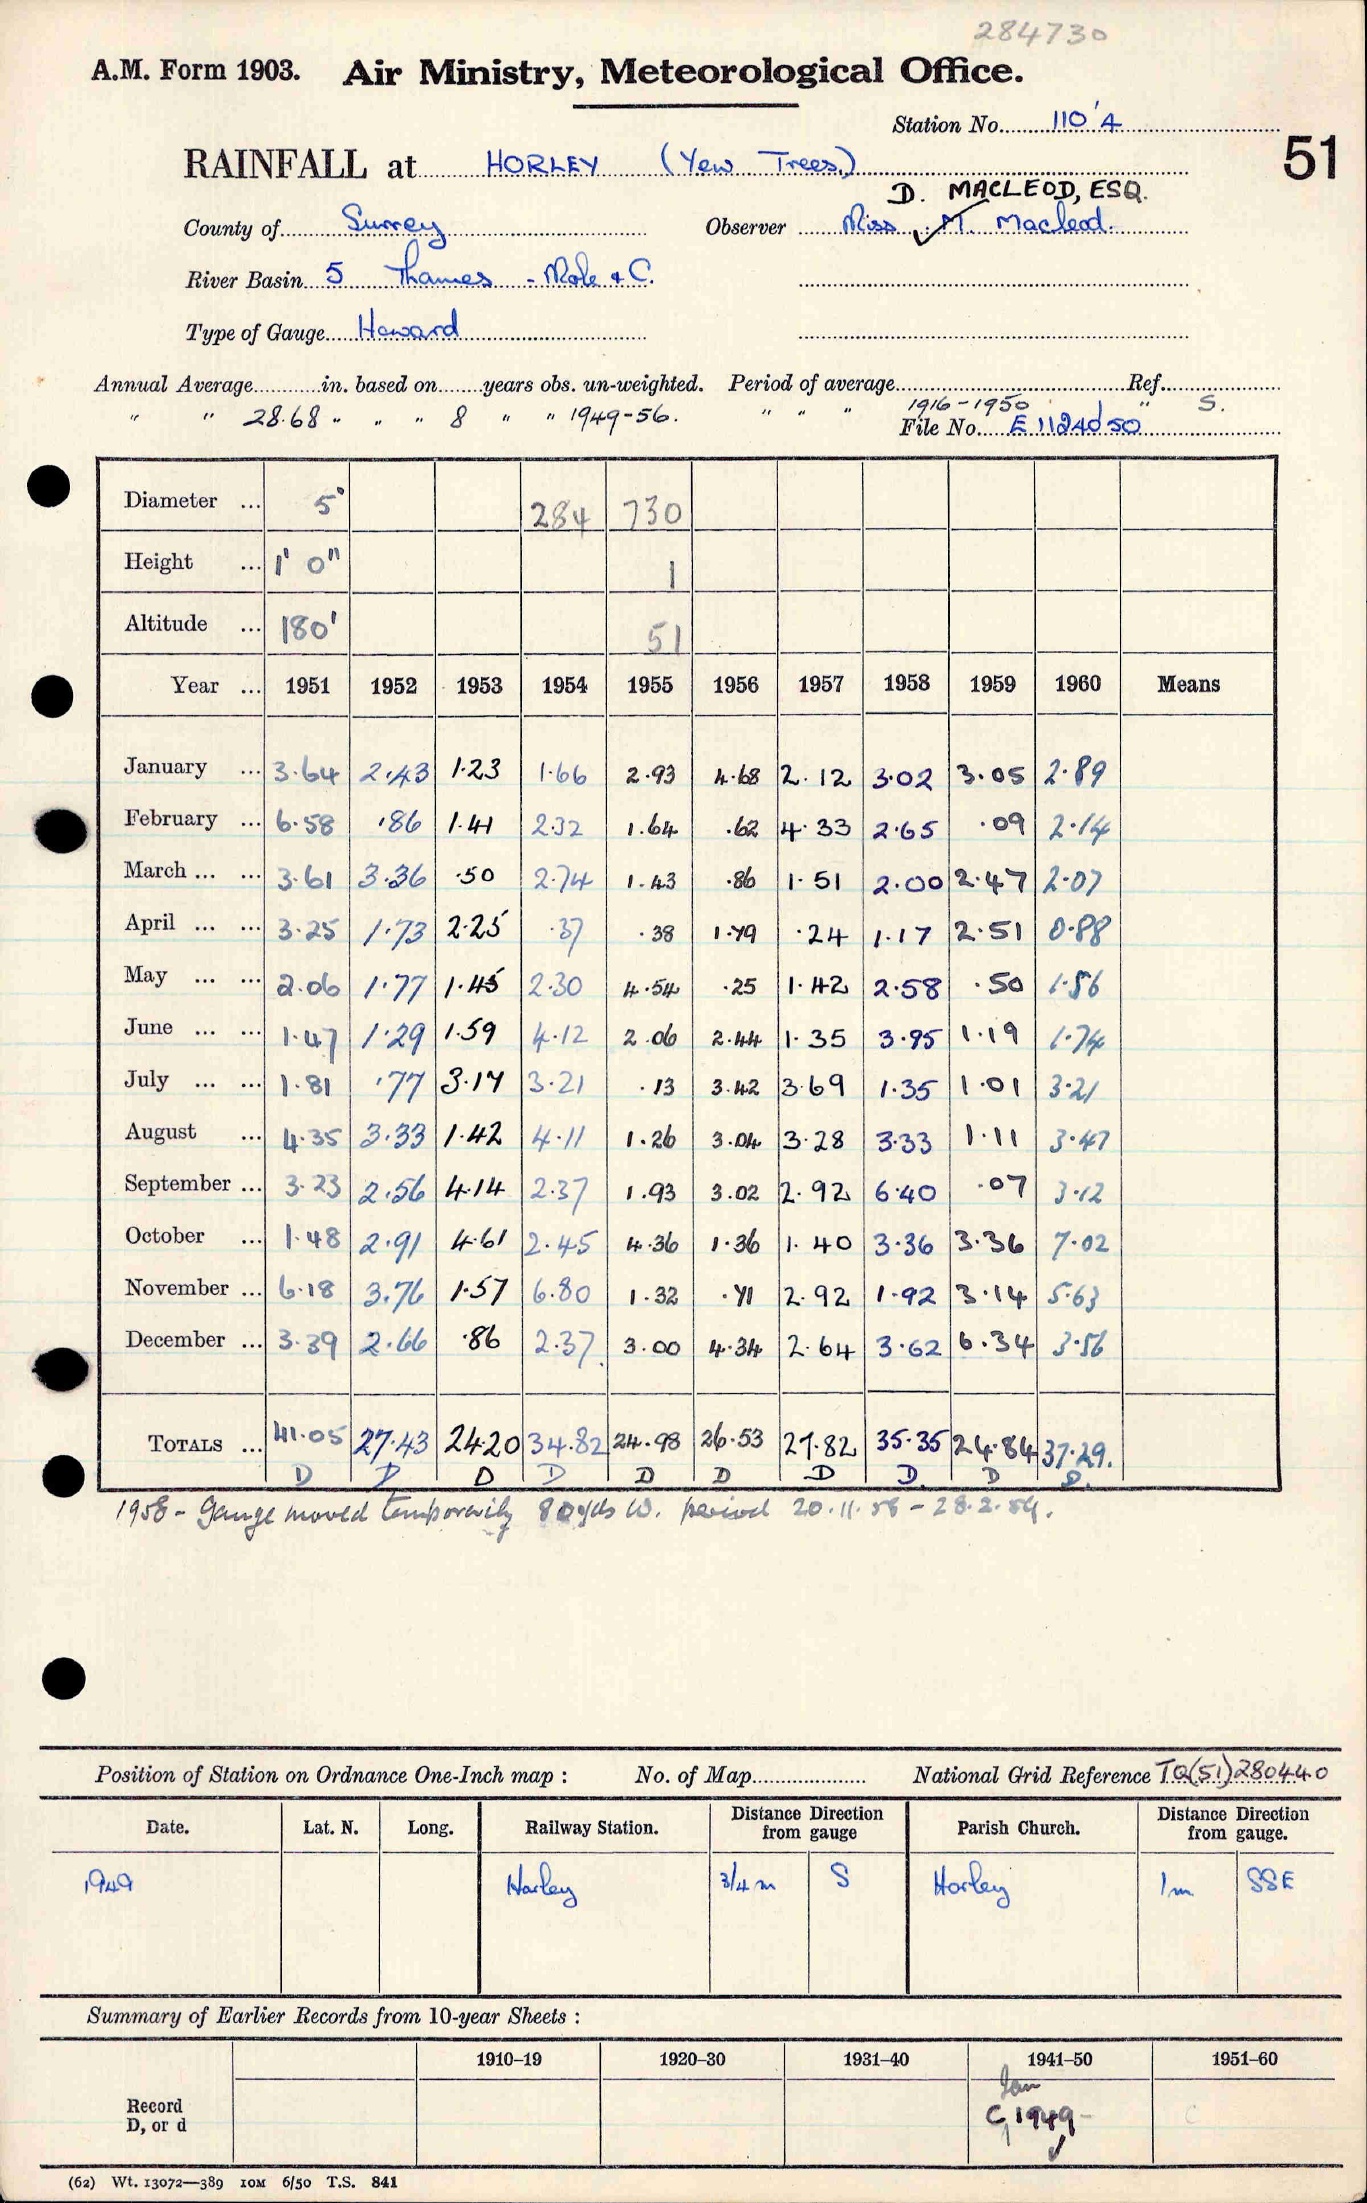 284730
A.M. Form 1903. Air Ministry, Meteorological Office.
Station No. 110'4
51
RAINFALL at HORLEY (Yew Trees.)
D. MACLEOD, ESQ.
County of Surrey Observer Miss M. Macleod.
River Basin 5 Thames - Mole & C.
Type of Gauge Howard
Annual Average in. based on years obs. un-weighted. Period of average Ref.
" " 28.68 " " " 8 " " 1949-56. " " " 1916-1950 " S.
File No. E
Diameter ... 5" 284 730
Height ... 1' 0" 1
Altitude ... 180' 51
Year ... 1951 1952 1953 1954 1955 1956 1957 1958 1959 1960 Means
January ... 3.64 2.43 1.23 1.66 2.93 4.68 2.12 3.02 3.05 2.89
February ... 6.58 .86 1.41 2.32 1.64 .62 4.33 2.65 .09 2.14
March ... ... 3.61 3.36 .50 2.74 1.43 .86 1.51 2.00 2.47 2.07
April ... ... 3.25 1.73 2.25 .37 .38 1.79 .24 1.17 2.51 0.88
May ... ... 2.06 1.77 1.45 2.30 4.54 .25 1.42 2.58 .50 1.56
June ... ... 1.47 1.29 1.59 4.12 2.06 2.44 1.35 3.95 1.19 1.74
July ... ... 1.81 .77 3.17 3.21 .13 3.42 3.69 1.35 1.01 3.21
August ... 4.35 3.33 1.42 4.11 1.26 3.04 3.28 3.33 1.11 3.47
September ... 3.23 2.56 4.14 2.37 1.93 3.02 2.92 6.40 .07 3.12
October ... 1.48 2.91 4.61 2.45 4.36 1.36 1.40 3.36 3.36 7.02
November ... 6.18 3.76 1.57 6.80 1.32 .71 2.92 1.92 3.14 5.63
December ... 3.39 2.66 .86 2.37 3.00 4.34 2.64 3.62 6.34 3.56
TOTALS ... 41.05 27.43 24.20 34.82 24.98 26.53 27.82 35.35 24.84 37.29.
D D D D D D D D. D D.
1958 - Gauge moved temporarily 80 yds W. period 20.11.58 - 28.2.59.
Position of Station on Ordnance One-Inch map : No. of Map National Grid Reference TQ(51)280440
Date. Lat. N. Long. Railway Station. Distance Direction from gauge Parish Church. Distance Direction from gauge.
1949 Horley 3/4 m S Horley 1m SSE
Summary of Earlier Records from 10-year Sheets :
1910–19 1920–30 1931–40 1941–50 1951–60
Record D, or d Jan C 1949- C
(62) Wt. 13072—389 10M 6/50 T.S. 841